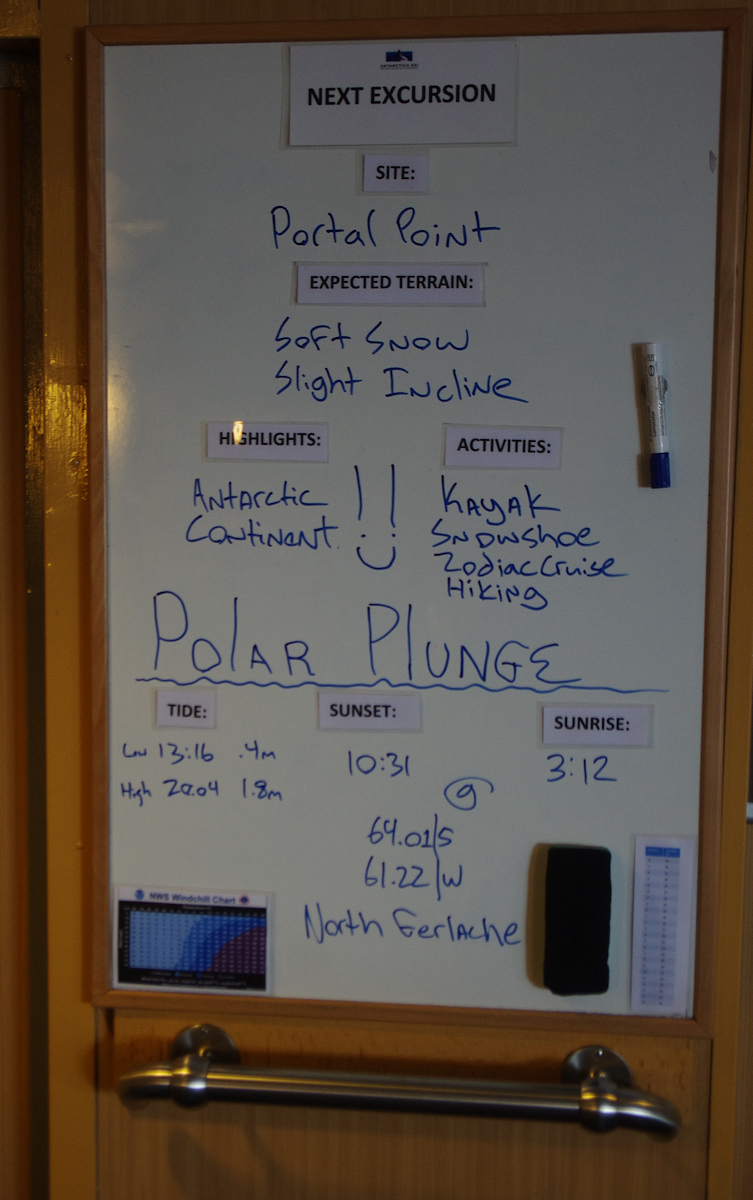 NEXT EXCURSION
SITE:
Portal Point
EXPECTED TERRAIN:
Soft Snow
Slight Incline
HIGHLIGHTS:
Antarctic
Continent !!
ACTIVITIES:
Kayak
Snowshoe
Zodiac Cruise
Hiking
Polar Plunge
TIDE:
Low 13:16 .4m
High 20:04 1.8m
SUNSET:
10:31
SUNRISE:
3:12
@
64.01/S
61.22/W
North Gerlache
NWS Windchill Chart